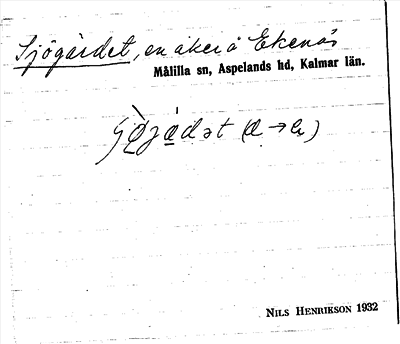 Sjögärdet, en åker å Ekenäs
Målilla sn, Aspelands hd, Kalmar län.
NILS HENRIKSON 1932